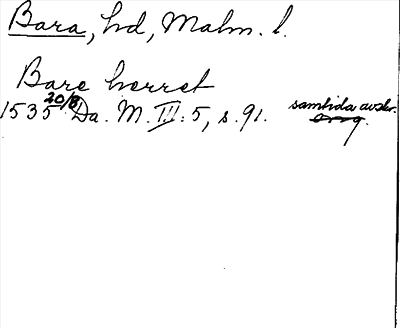 Bara, hd, Malm. l.
Bare herret
1535 20/8 Da. M. III: 5, s. 91. samtida avskr.
orig.